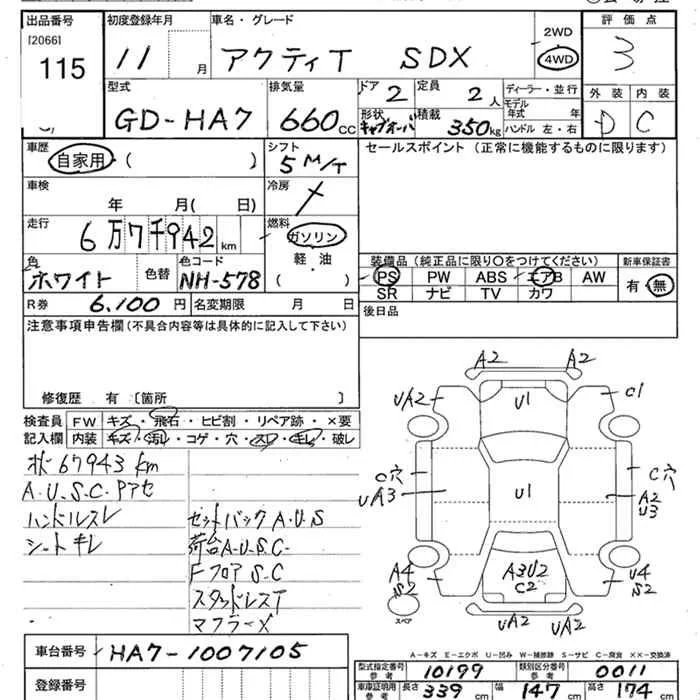 出品番号 初度登録年月 車名・グレード 評価点
[2066] 2WD
115 11 月 アクティT SDX 4WD 3
型式 排気量 ドア 定員 ディーラー・並行 外装 内装
GD-HA7 660cc 2 2人 モデル年式 年 D C
形状 積載 ハンドル 左・右
キャブオーバ 350kg
車歴 シフト セールスポイント(正常に機能するものに限ります)
自家用・( ) 5 M/T
車検 冷房
年 月( 日)
走行 燃料
6万7千942km ガソリン
軽油
色 色替 色コード ( )
ホワイト NH-578
装備品(純正品に限り○をつけてください) 新車保証書
PS PW ABS エアB AW 有・無
SR ナビ TV カワ
R券 6.100円 名変期限 月 日
後日品
注意事項申告欄(不具合内容等は具体的に記入して下さい)
修復歴 有〔箇所 〕
検査員記入欄 FW キズ・飛石・ヒビ割・リペア跡・×要
内装 キズ・汚れ・コゲ・穴・スレ・キレ・破レ
67943km
A.U.S.C.Pアセ
ハンドルスレ
シートキレ
セットバックA.U.S
荷台A.U.S.C.
FフロアS.C
スタッドレスT
マフラーメ
A2 A2
UA2 U1 C1
C穴 C穴
UA3 U1 A2
U3
A4 A3U2 U4
S2 C2 S2
スペア UA2 UA2
A-キズ E-エクボ U-凹み W-補修跡 S-サビ C-腐食 ××-交換済
車台番号 HA7-1007105
登録番号
型式指定番号 参考 10199 類別区分番号 参考 0011
車庫証明用 参考 長さ 339cm 幅 147cm 高さ 174cm